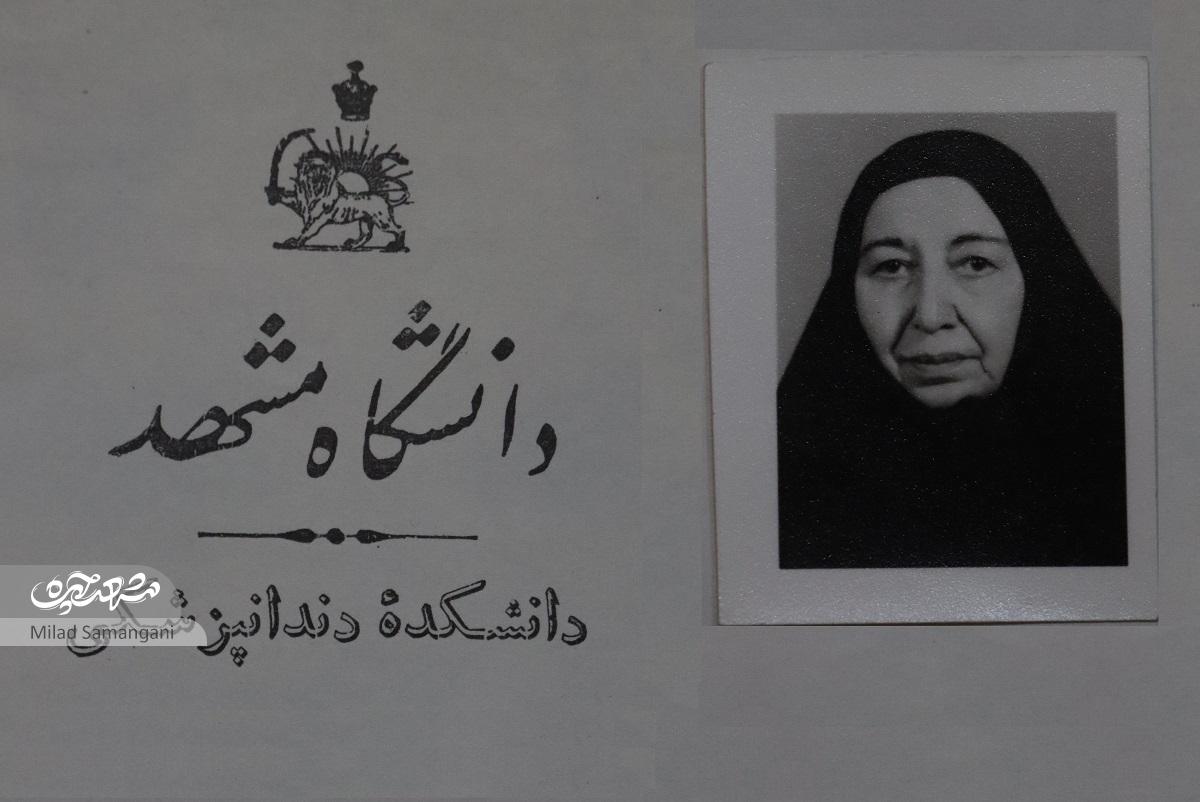 دانشگاه مشهد
دانشکدهٔ دندانپزشکی
مشهد چهره
Milad Samangani